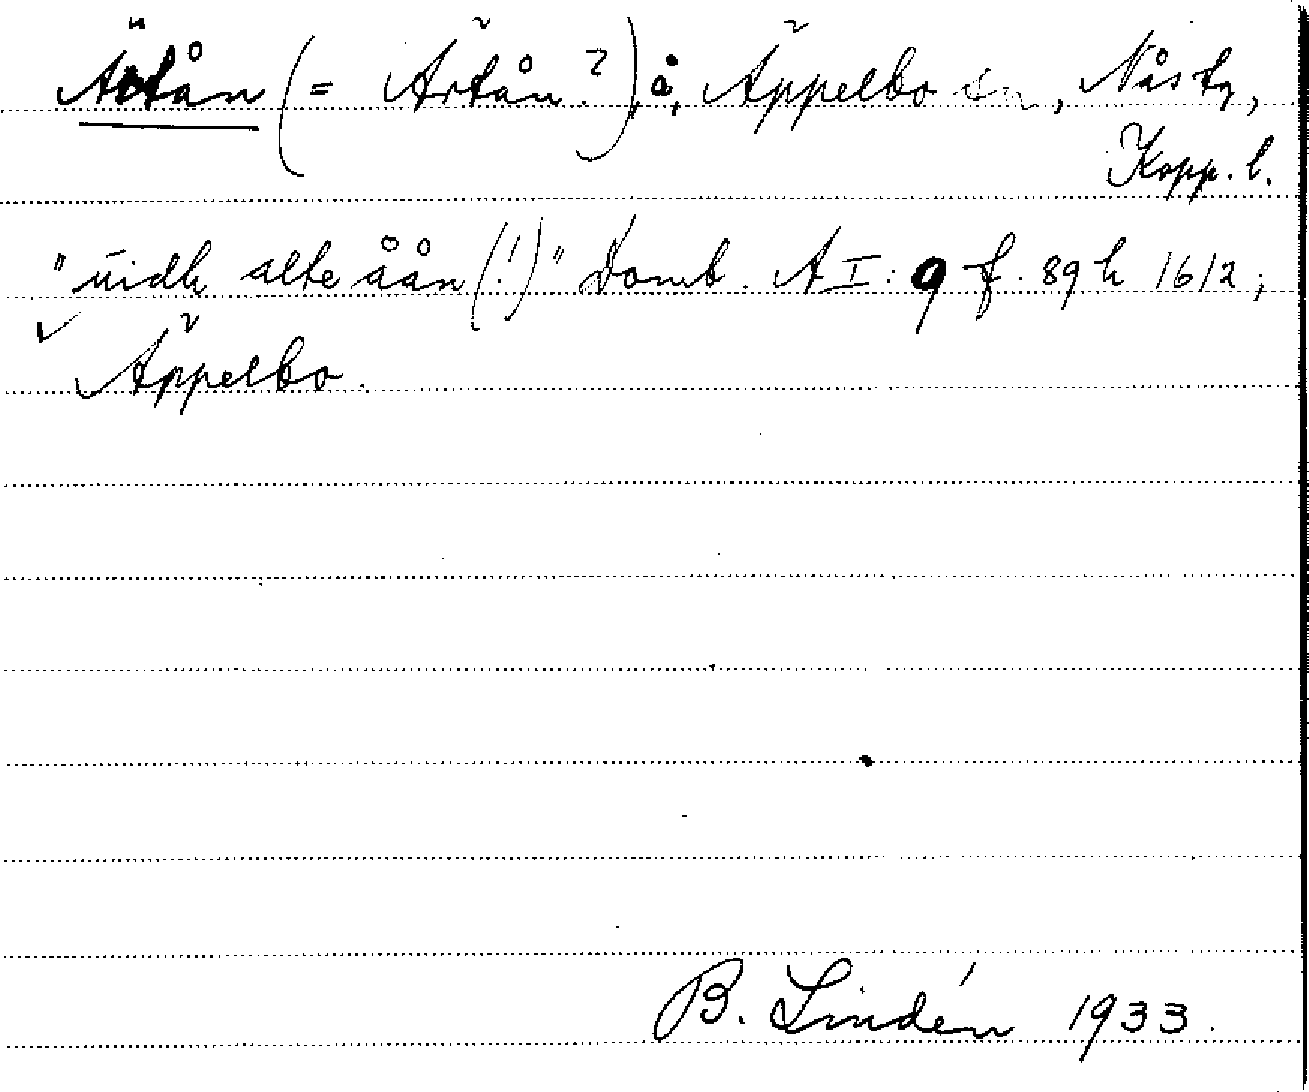 Ältån (= Ärtån?), å, Äppelbo sn, Nås tg,
Kopp. l.
"uidh alte åån (!)" Domb. A I: 9 f. 89 h 1612;
Äppelbo.
B. Lindén 1933.